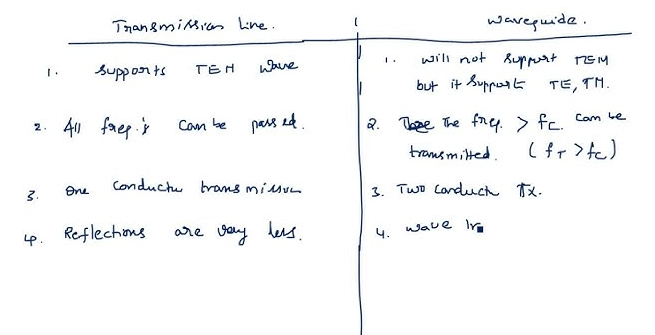 Transmission Line.
Waveguide.
1. Supports TEM Wave
1. Will not support TEM
but it support TE, TM.
2. All freq.'s can be passed.
2. The freq. > fc. can be
transmitted. (fT > fc)
3. One conductor transmission
3. Two conduct Tx.
4. Reflections are very less.
4. Wave